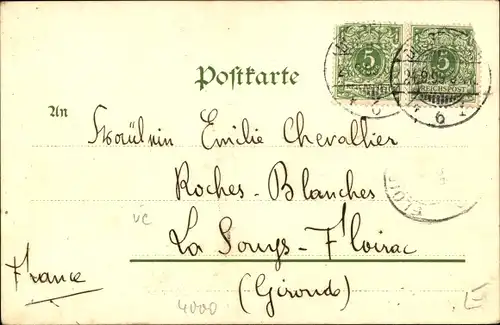 5 5
REICHSPOST
Postkarte
An
Fräulein Emilie Chevallier
Roches-Blanches
vc
La Souys-Floirac
France
(Gironde)
4000